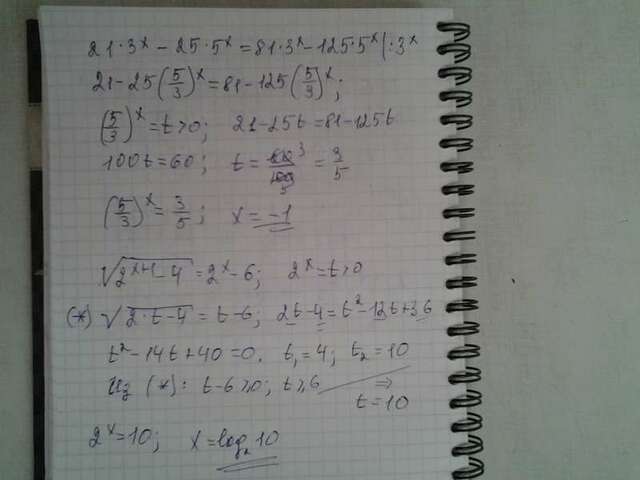 21·3ˣ − 25·5ˣ = 81·3ˣ − 125·5ˣ |:3ˣ
21 − 25(5/3)ˣ = 81 − 125(5/3)ˣ;
(5/3)ˣ = t > 0; 21 − 25t = 81 − 125t
100t = 60; t = 60/100 3/5 = 3/5
(5/3)ˣ = 3/5; x = −1
√(2ˣ⁺¹ − 4) = 2ˣ − 6; 2ˣ = t > 0
(*) √(2·t − 4) = t − 6; 2t − 4 = t² − 12t + 36
t² − 14t + 40 = 0. t₁ = 4; t₂ = 10
Из (*): t − 6 ≥ 0; t ≥ 6 ⇒
t = 10
2ˣ = 10; x = log₂10